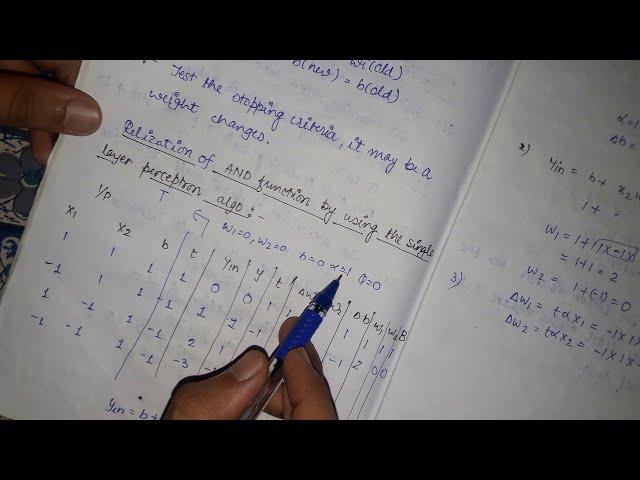 wi(old)
b(new) = b(old)
:- Test the stopping criteria, it may be a
weight changes.
Relization of AND function by using the single
layer perceptron algo :-
I/P T w1=0, w2=0 b=0 α=1 θ=0
x1 x2 b t Yin y t Δw1 w2 Δb w1 w2 B
1 1 1 1 0 0 1 1 1 1 1 1
-1 1 1 -1 1 1
1 -1 1 -1 2 1 -1 2 0 0
-1 -1 1 -1 -3
Yin = b+
α=1
Δb =
2) Yin = b + x2w
1 +
w1 = 1+1x-1x
= 1+1 = 2
w2 = 1+(-1) = 0
3) Δw1 = tαx1 = -1x1x
Δw2 = tαx2 = -1x1x